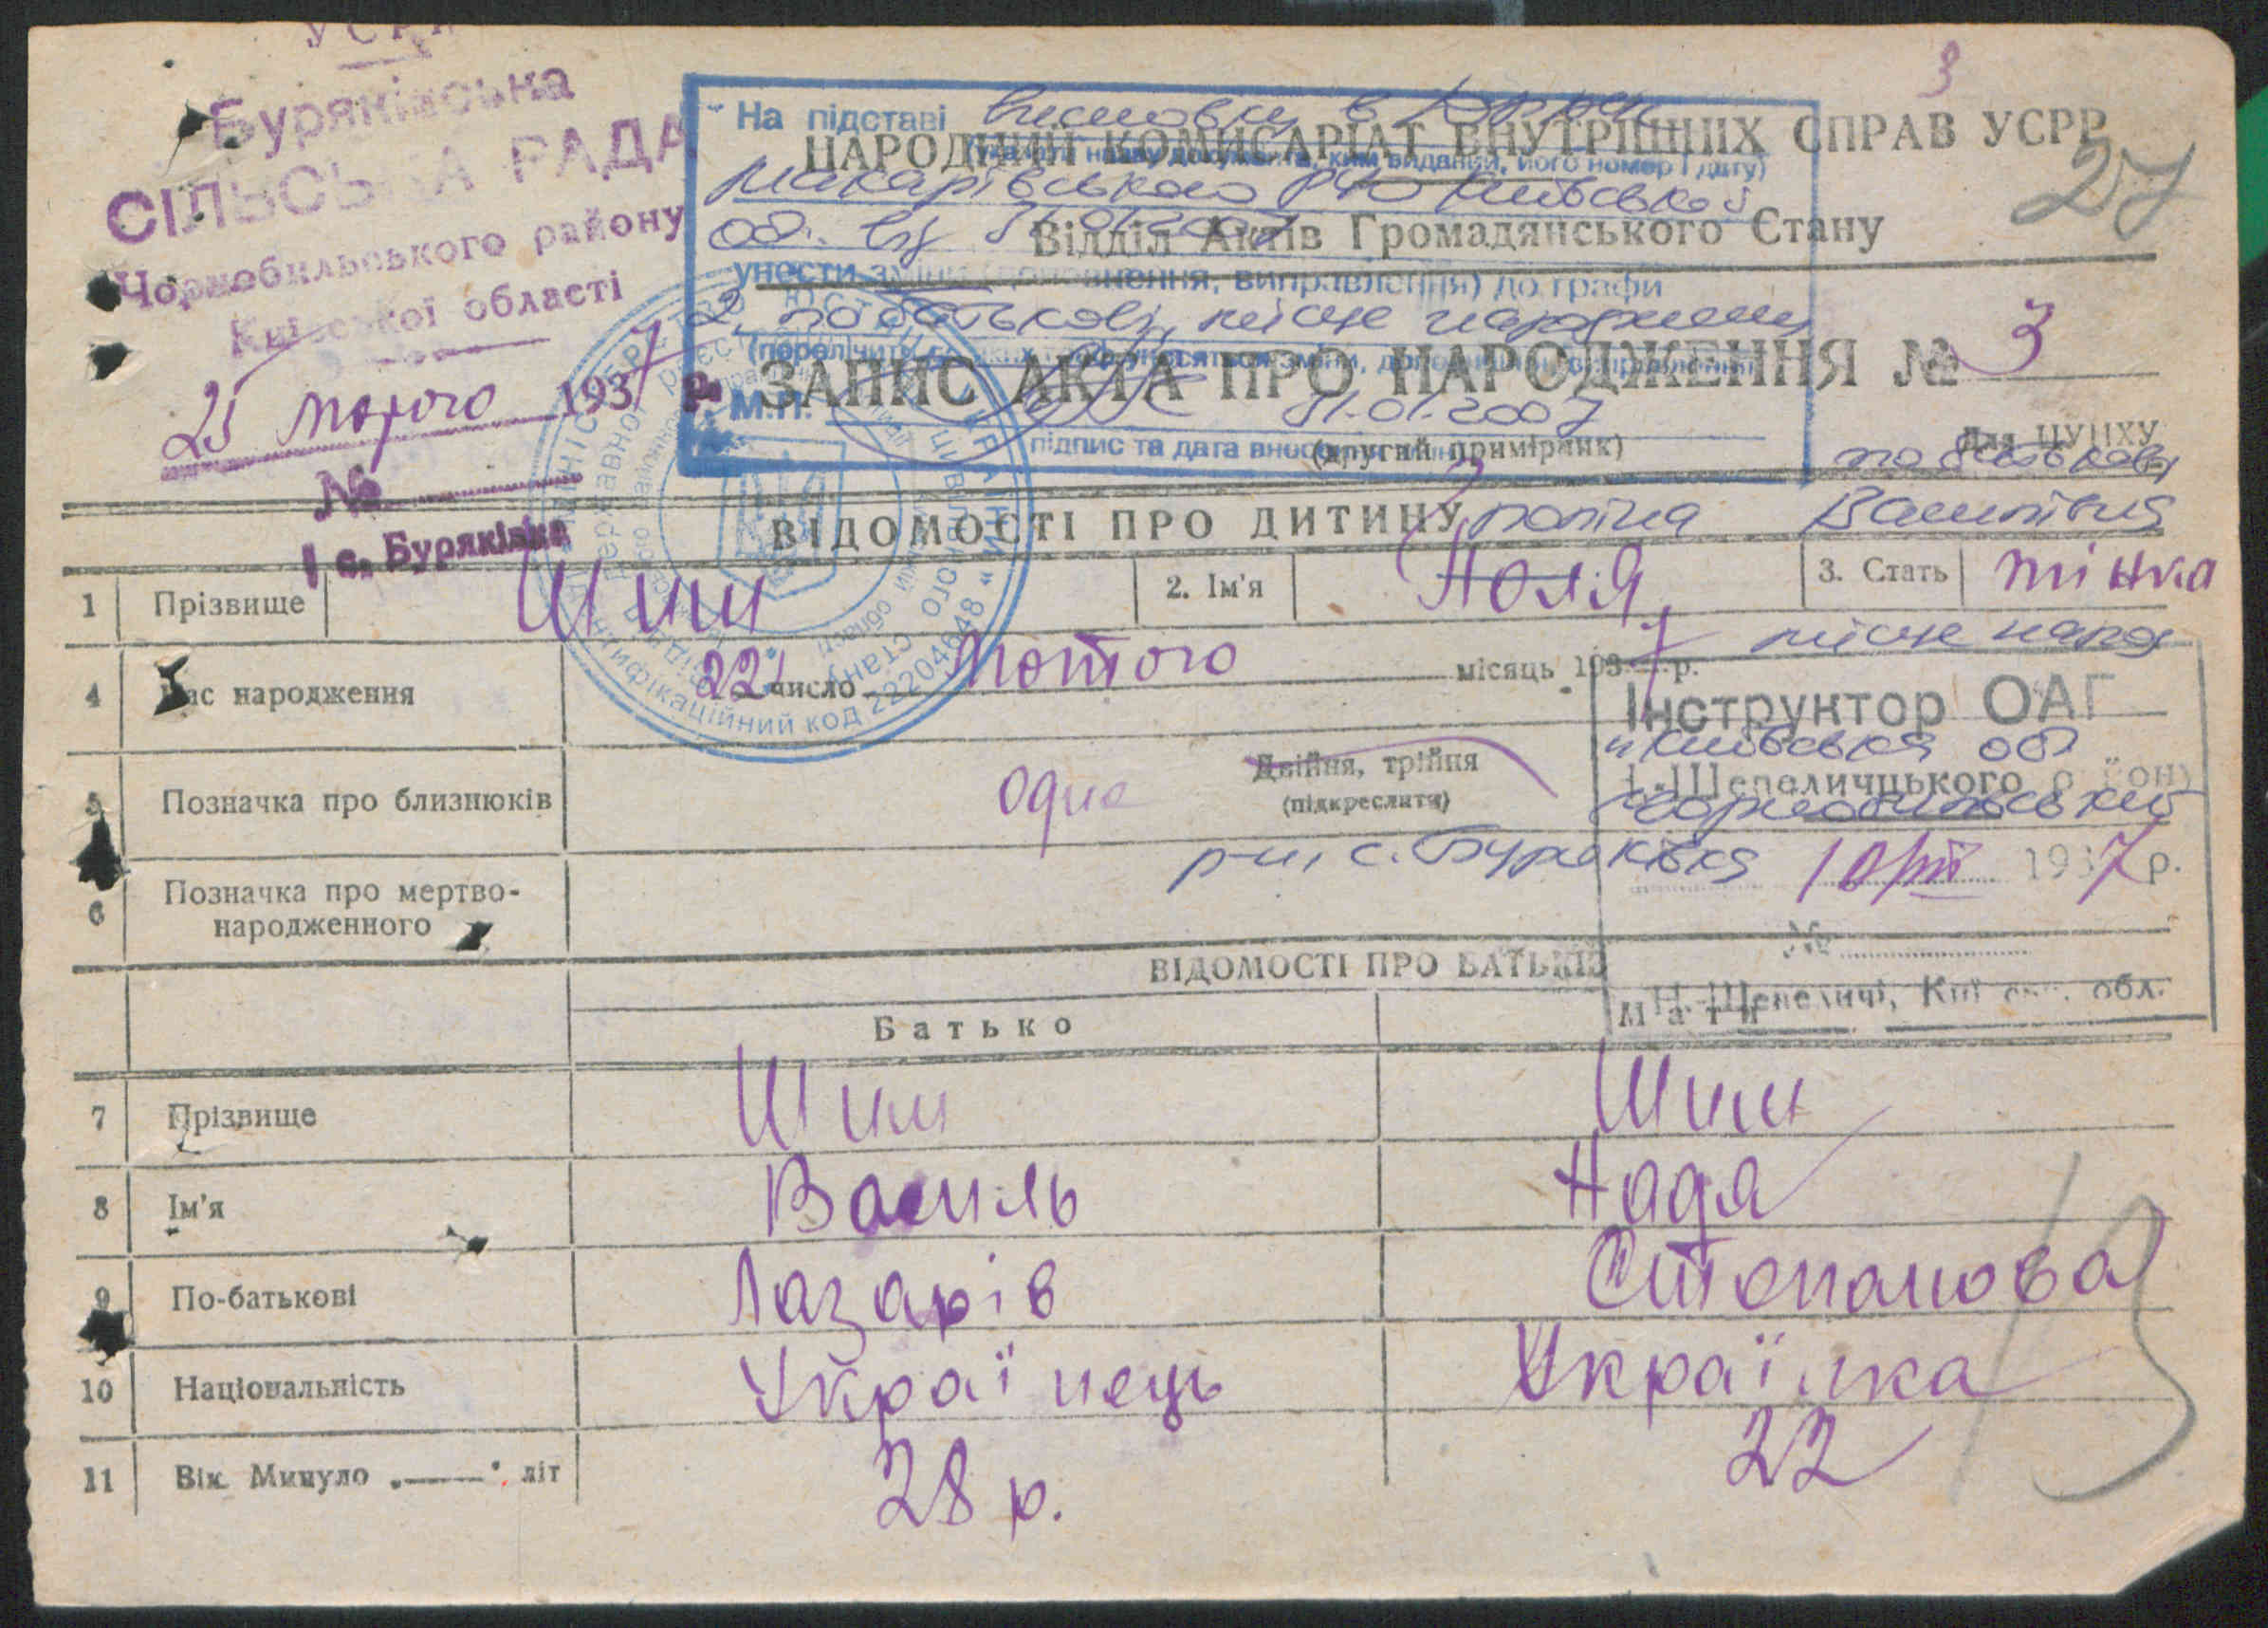 УСРР
Буряківська
СІЛЬСЬКА РАДА
Чорнобильського району
Київської області
25 лютого 1937 р.
№
с. Буряківка
3
27
На підставі висновку в
(вказати назву документа, ким виданий, його номер і дату)
Макарівського РУЮ Київської
обл. від 31.01.2007
унести зміни (доповнення, виправлення) до графи
2, по батькові, місце народження
М.П. 31.01.2007
підпис та дата внесення
НАРОДНІЙ КОМИСАРІАТ ВНУТРІШНІХ СПРАВ УСРР
Відділ Актів Громадянського Стану
ЗАПИС АКТА ПРО НАРОДЖЕННЯ № 3
(другий примірник)
Для ЦУНХУ
по батькові
ВІДОМОСТІ ПРО ДИТИНУ
поліна Василівна
1 Прізвище Шиш 2. Ім'я Поля 3. Стать жінка
місце нар
4 Час народження 22 число лютого місяць 1937 р.
Інструктор ОАГ
Київська обл
Н.-Шепеличцького району
Чорнобильський
5 Позначка про близнюків Одна Двійня, трійня
(підкреслити)
р-н, с. Буряківка
10/III 1937 р.
6 Позначка про мертво-
народженного
№
Н.-Шепеличі, Київськ. обл.
ВІДОМОСТІ ПРО БАТЬКІВ
Батько Мати
7 Прізвище Шиш Шиш
8 Ім'я Василь Надя
9 По-батькові Лазарів Степанова
10 Національність Українець Українка
11 Вік. Минуло „——“ літ 28 р. 22
13
ідентифікаційний код 22204648